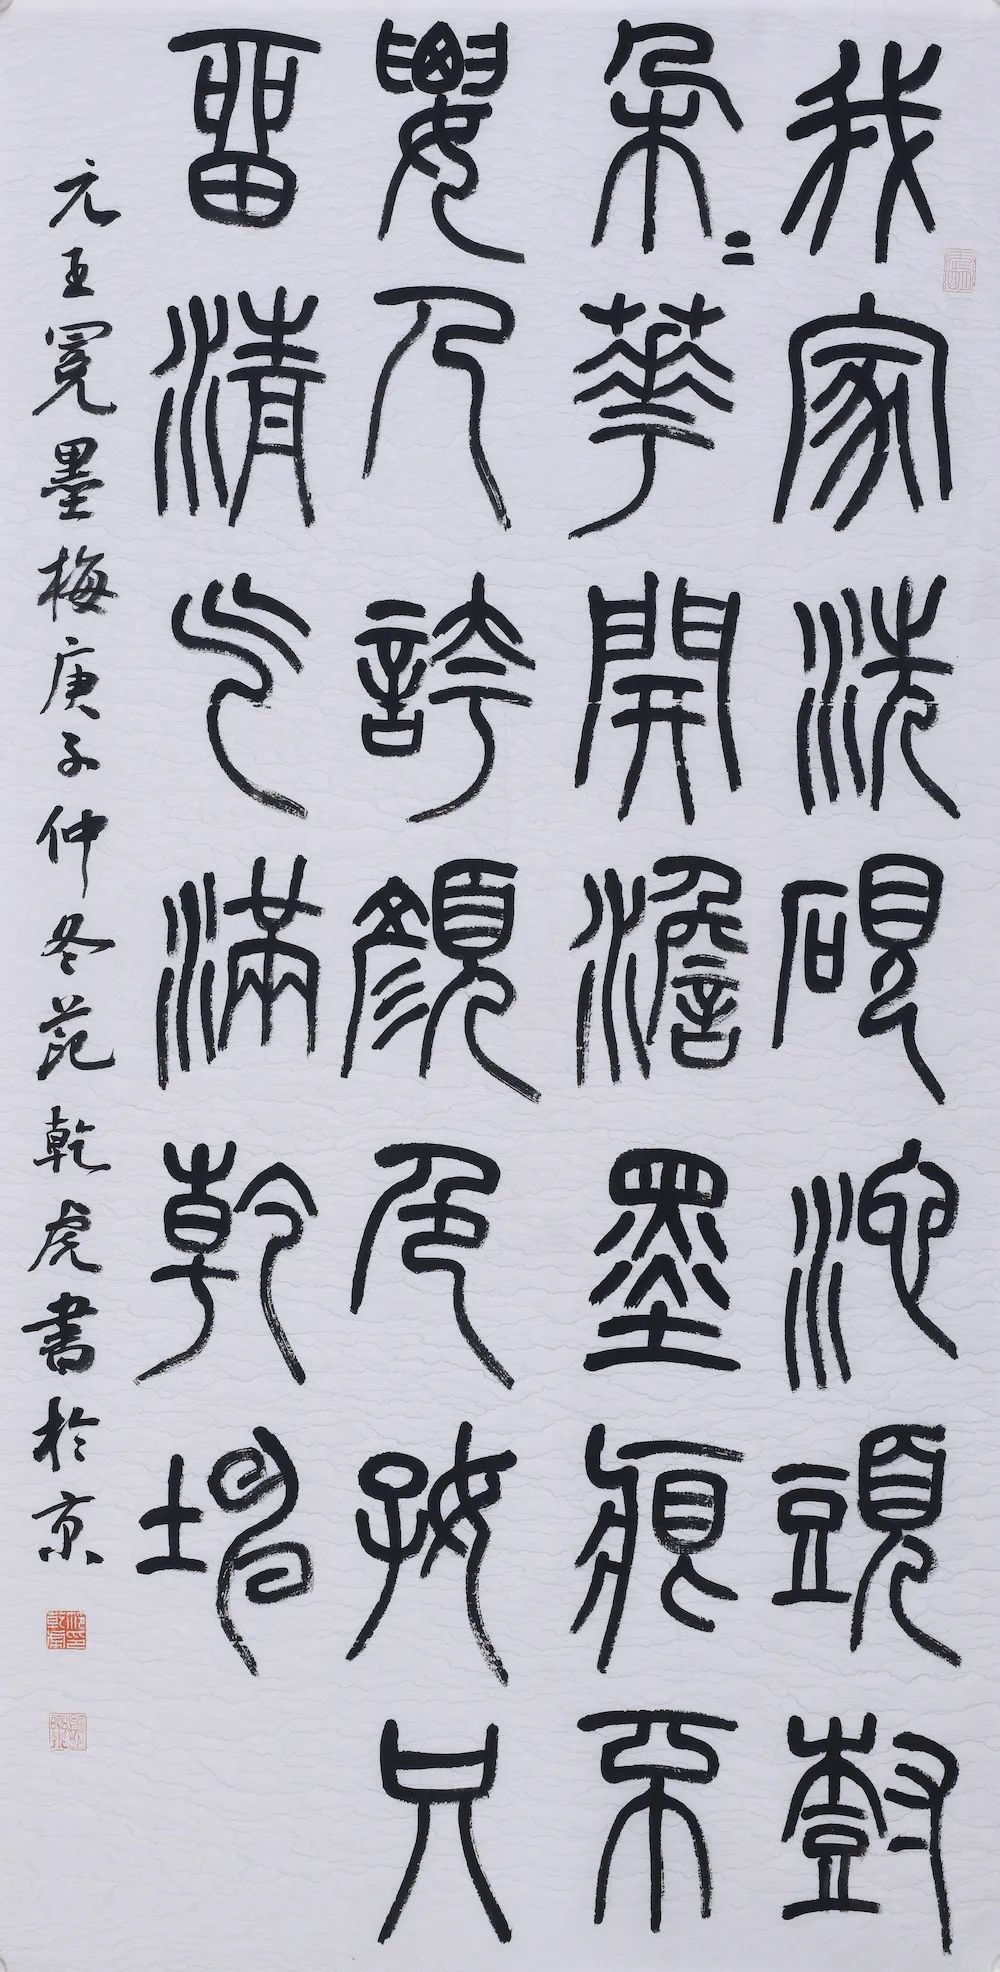 我家洗硯池頭樹
朵〻華開澹墨痕不
要人誇顏色好只
留清气滿乾坤
元王冕墨梅庚子仲冬范乾虎書於京